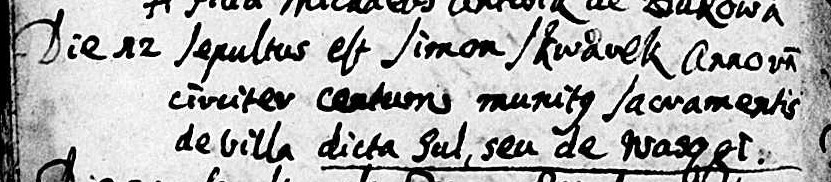 filia Michaelis de Bukowa
Die 12 sepultus est Simon Skwarek Annorū
circiter centum munitq sacramentis
de villa dicta Gul, seu de